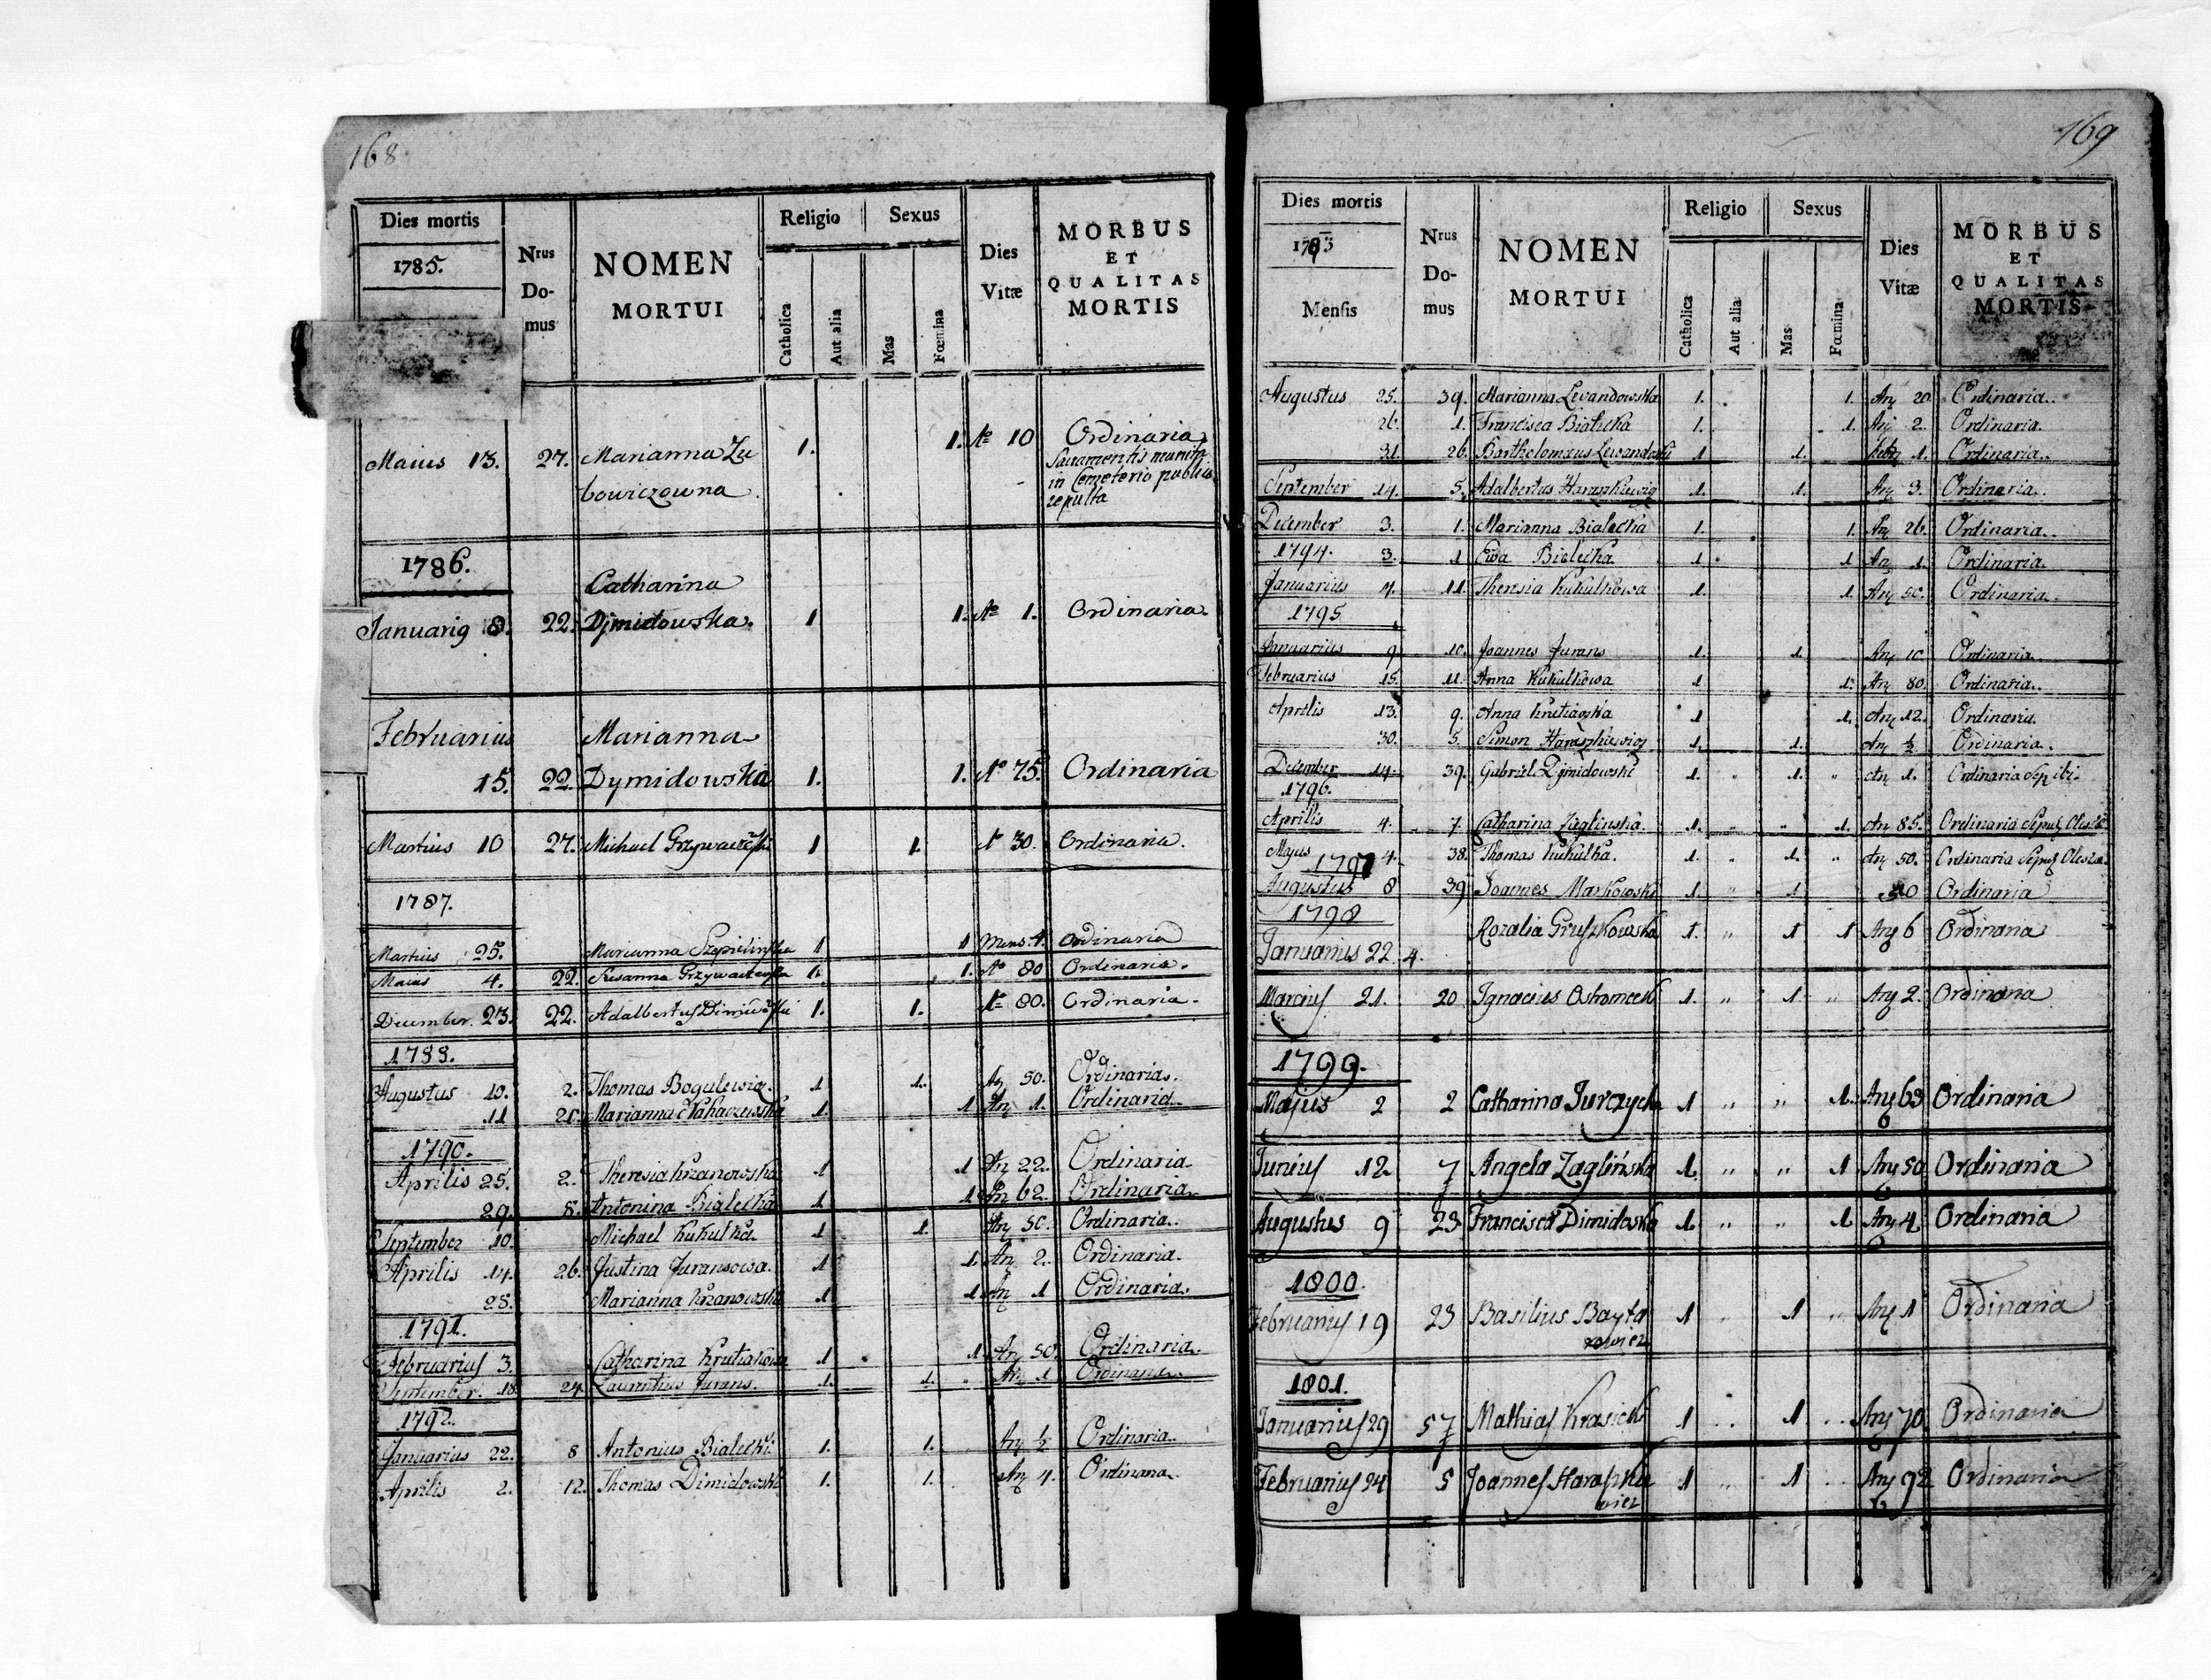 168
Dies mortis
1785.
Nrus Do- mus
NOMEN MORTUI
Religio
Catholica
Aut alia
Sexus
Mas
Fœmina
Dies Vitæ
MORBUS ET QUALITAS MORTIS
Maius 13. 27. Marianna Zu 1. 1. Aō 10 Ordinaria
bowiczowna
Sacramentis munita
in Cemeterio publico
sepulta
1786.
Catharina
Januarig 8. 22. Djmidowska. 1 1. Aō 1. Ordinaria
Februarius Marianna
15. 22. Dymidowska 1. 1. Aō 75. Ordinaria
Martius 10 27. Michael 1 1. Aō 30. Ordinaria.
1787.
Martius 25. Marianna 1 1 Mens. 4. Ordinaria
Maius 4. 22. Susanna 1. 1. Aō 80 Ordinaria.
December. 23. 22. Adalbertus 1. 1. Aō 80. Ordinaria.
1788.
Augustus 10. 2. Thomas Bogulewicz. 1. 1. An 50. Ordinaria.
11 Marianna 1. 1 An 1. Ordinaria.
1790.
Aprilis 25. 2. Theresia Krzanowska 1 1 An 22. Ordinaria.
29. 8. Antonina Bialecka 1 1 An 62. Ordinaria.
September 10. Michael Kukulka 1 1. An 50. Ordinaria.
Aprilis 14. 26. Justina Juransowa. 1 1. An 2. Ordinaria.
28. Marianna Krzanowska 1. 1 An 1 Ordinaria.
1791.
Februarius 3. Catharina Krutiakowa 1 1 An 50. Ordinaria.
September. 18. 24. Laurentius Jurans. 1. 1. An 1 Ordinaria.
1792.
Januarius 22. 8 Antonius Bialecki 1. 1. An ½ Ordinaria.
Aprilis 2. 12. Thomas Dimidowski 1. 1. An 4. Ordinaria.
169
Dies mortis
1793
Mensis
Nrus Do- mus
NOMEN MORTUI
Religio
Catholica
Aut alia
Sexus
Mas
Fœmina
Dies Vitæ
MORBUS ET QUALITAS MORTIS
Augustus 25. 39. Marianna Levandowska 1. 1. An 20. Ordinaria.
26. 1. Francisca Bialecka 1. 1. An 2. Ordinaria.
31. 26. Bartholomæus Lewandoski 1 1. 1. Ordinaria.
September 14. 5. Adalbertus Haraszkiewicz 1. 1. An 3. Ordinaria.
December 3. 1. Marianna Bialecka 1. 1. An 26. Ordinaria.
1794. 3. 1 Ewa Bielecka 1. 1 An 1. Ordinaria.
Januarius 4. 11. Theresia Kukulkowa 1. 1. An 50. Ordinaria.
1795
Januarius 9. 10. Joannes Jurans 1. 1. An 10. Ordinaria.
Februarius 15. 11. Anna Kukulkowa 1. 1. An 80. Ordinaria.
Aprilis 13. 9. Anna 1 1. An 12. Ordinaria.
30. 5. Simon Haraszkiewicz 1. 1. An ½ Ordinaria.
December 14. 39. Gabriel Djmidowski 1. " 1. " An 1. Ordinaria Sep: ibi.
1796.
Aprilis 4. 7. Catharina Zaglinska. 1. " " 1. An 85. Ordinaria
Majus 4. 38. Thomas Kukulka. 1. " 1. " An 50. Ordinaria
1797
Augustus 8 39 Joannes Markowski 1. " 1 Ordinaria
1798
Januarius 22 4. Rozalia Gruszkowska 1. " 1 1 An 6 Ordinaria
Marcius 21. 20 Ignacius 1. " 1 " An 2. Ordinaria
1799.
Majus 2 2 Catharina Jurczycka 1 " " 1. An 63 Ordinaria
Junius 12. 7 Angela Zaglińska 1. " " 1 An 50 Ordinaria
Augustus 9 23 Francisca Dimidoska 1. " " 1. An 4 Ordinaria
1800.
Februarius 19 23 Basilius Bayta 1 " 1 " An 1 Ordinaria
rowicz
1801.
Januarius 29 57 Mathias Krasicki 1 " 1 " An 70. Ordinaria
Februarius 24 5 Joannes Haraszkie 1 " 1 " An 92 Ordinaria
wicz